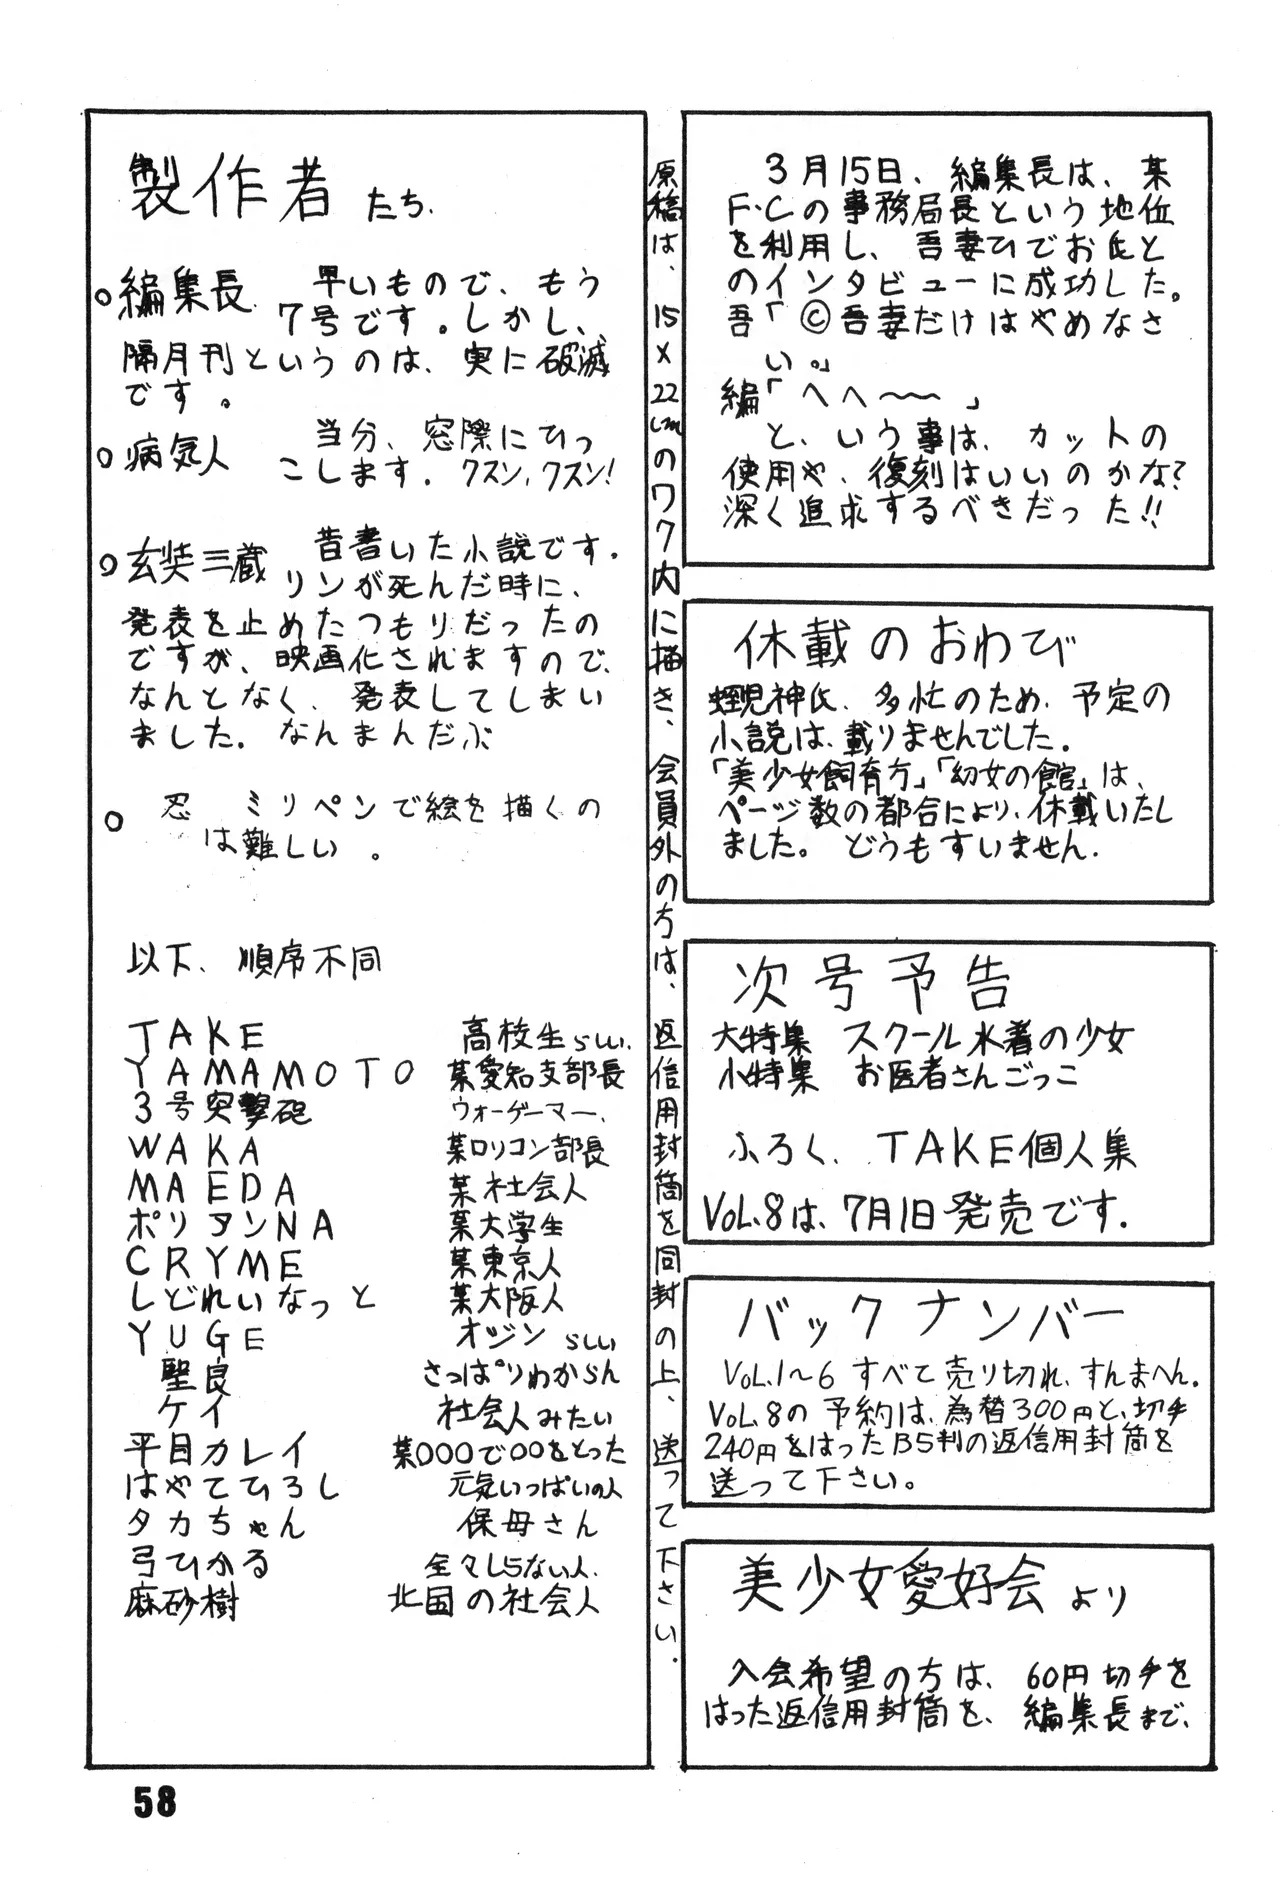 製作者たち.
○編集長 早いもので、もう
7号です。しかし、
隔月刊というのは、実に破滅
です。
○病気人 当分、窓際にひっ
こします。クスン,クスン!
○玄奘三蔵 昔書いた小説です.
リンが死んだ時に、
発表を止めたつもりだったの
ですが、映画化されますので、
なんとなく、発表してしまい
ました。なんまんだぶ
○忍 ミリペンで絵を描くの
は難しい。
以下、順序不同
TAKE 高校生らしい.
YAMAMOTO 某愛知支部長
3号突撃砲 ウォーゲーマー.
WAKA 某ロリコン部長
MAEDA 某社会人
ポリアンNA 某大学生
CRYME 某東京人
しどれいなっと 某大阪人
YUGE オジンらしい
聖良 さっぱりわからん
ケイ 社会人みたい
平目カレイ 某○○○で○○をとった
はやてひろし 元気いっぱいの人
タカちゃん 保母さん
弓ひかる 全々しらない人.
麻砂樹 北国の社会人
原稿は、15×22cmのワク内に描き、会員外の方は、返信用封筒を同封の上、送って下さい.
3月15日、編集長は、某
F・Cの事務局長という地位
を利用し、吾妻ひでお氏と
のインタビューに成功した。
吾「©吾妻だけはやめなさ
い。」
編「へへ〜〜」
と、いう事は、カットの
使用や、復刻はいいのかな?
深く追求するべきだった!!
休載のおわび
蛭児神氏、多忙のため、予定の
小説は、載りませんでした.
「美少女飼育方」「幼女の館」は、
ページ数の都合により、休載いたし
ました。どうもすいません.
次号予告
大特集 スクール水着の少女
小特集 お医者さんごっこ
ふろく、TAKE個人集
VoL.8は、7月1日発売です.
バックナンバー
VoL.1〜6 すべて売り切れ、すんまへん.
VoL.8の予約は、為替300円と、切手
240円をはったB5判の返信用封筒を
送って下さい。
美少女愛好会より
入会希望の方は、60円切手を
はった返信用封筒を、編集長まで、
58